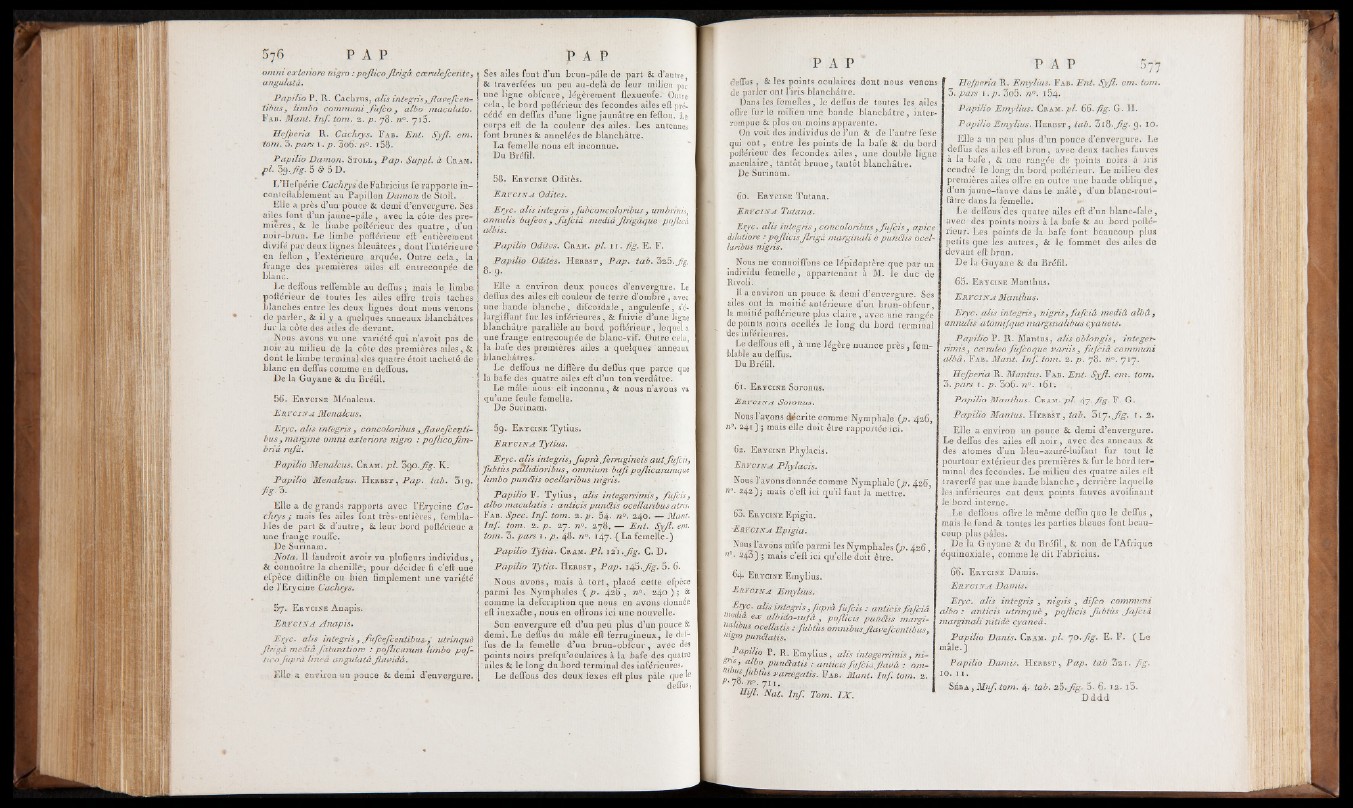 576 P A P
omni exteriore nigro : poſtico ſtrigâ cœruleſcente,
angulatâ.
Papilio P. R. Cachrus, alis integris, flaveſcen-
tibus, limbo communi fuſco, albo maculato.
FAB. Mant. Inſ. tom. 2. p. 78. n°. 713.
Heſperia R. Cachrys. FAB. Ent. Syſt. em.
tom. 3. pars 1. p. 306. n°. 158.
Papilio Damon. STOLL, Pap. Suppl. à CRAM.
pl. 39. fig. 5 & 5 D.
L'Heſpérie Cachrys de Fabricius ſe rapporte in-
conteſtablement au Papillon Damon de Stoll.
Elle a près d'un pouce & demi d'envergure. Ses
ailes ſont d'un jaune-pâle, avec la côte des pre-
mières, & le limbe poſtérieur des quatre, d'un
noir-brun. Le limbe poſtérieur eſt entièrement
diviſé par deux lignes bleuâtres, dont l'intérieure
en feſton, l'extérieure arquée. Outre cela, la
frange des premières ailes eſt entrecoupée de
blanc.
Le deſſous reſſemble au deſſus ; mais le limbe
poſtérieur de toutes les ailes offre trois taches
blanches entre les deux lignes dont nous venons
de parler, & il y a quelques anneaux blanchâtres
ſur la côte des ailes de devant.
Nous avons vu une variété qui n'avoit pas de
noir au milieu de la côte des premières ailes, &
dont le limbe terminal des quatre étoit tacheté de
blanc en deſſous comme en deſſous.
De la Guyane & du Bréſil.
56. ERYCINE Ménalcus.
ERYCINA Menalcus.
Eryc. alis integris, concoloribus, flaveſcenti-
bus, margine omni exteriore nigro : poſtico fim-
briâ rufâ.
Papilio Menalcus. CRAM. pl. 390. fig. K.
Papilio Menalcus. HERBST, Pap. tab. 319.
fig. 3.
Elle a de grands rapports avec l'Erycine Ca-
chrys ; mais ſes ailes ſont très-entières, ſembla-
bles de part & d'autre, & leur bord poſtérieur a
une frange rouſſe.
De Surinam.
Nota. Il faudroit avoir vu pluſieurs individus,
& connoître la chenille, pour décider ſi c'eſt une
eſpèce diſtincte ou bien ſimplement une variété
de l'Erycine Cachrys.
57. ERYCINE Anapis.
ERYCINA Anapis.
Eryc. alis integris, fuſceſcentibus, utrinquè
ſtrigâ mediâ ſaturatiore : poſticarum limbo poſ-
tico ſuprà lineâ angulatâ flavidâ.
Elle a environ un pouce & demi d'envergure.
P A P
Ses ailes ſont d'un brun-pâle de part & d'autre,
& traverſées un peu au-delà de leur milieu par
une ligne obſcure, légèrement flexueuſe. Outre
cela, le bord poſtérieur des ſecondes ailes eſt pré-
cédé en deſſus d'une ligne jaunâtre en feſton. Le
corps eſt de la couleur des ailes. Les antennes
ſont brunes & annelées de blanchâtre.
La femelle nous eſt inconnue.
Du Bréſil.
58. ERYCINE Oditès.
ERYCINA Odites.
Eryc. alis integris, ſubconcoloribus, umbrinis,
annulis baſeos, faſciâ mediâ ſtrigâque poſticâ
albis.
Papilio Odites. CRAM. pl. 11. fig. E. F.
Papilio Odites. HERBST, Pap. tab. 323. fig.
8. 9.
Elle a environ deux pouces d'envergure. Le
deſſus des ailes eſt couleur de terre d'ombre, avec
une bande blanche, diſcoïdale, anguleuſe, s'é-
largiſſant ſur les inférieures, & ſuivie d'une ligne
blanchâtre parallèle au bord poſtérieur, lequel a
une frange entrecoupée de blanc-vif. Outre cela,
la baſe des premières ailes a quelques anneaux
blanchâtres.
Le deſſous ne diffère du deſſus que parce que
la baſe des quatre ailes eſt d'un ton verdâtre.
Le mâle nous eſt inconnu, & nous n'avons vu
qu'une ſeule femelle.
De Surinam.
59. ERYCINE Tytius.
ERYCINA Tytius.
Eryc. alis integris, ſuprà ferrugineis aut fuſcis,
ſubtùs pallidioribus, omnium baſi poſticarumque
limbo punctis ocellaribus nigris.
Papilio F. Tytius, alis integerrimis, fuſcis,
albo maculatis : anticis punctis ocellaribus atris.
FAB. Spec. Inſ. tom. 2. p. 54. n°. 240. — Mant.
Inſ. tom. 2. p. 27. n°. 278. — Ent. Syſt. em.
tom. 3. pars 1. p. 48. n°. 147. (La femelle.)
Papilio Tytia. CRAM. Pl. 121. fig. C. D.
Papilio Tytia. HERBST, Pap. 143. fig. 5. 6.
Nous avons, mais à tort, placé cette eſpèce
parmi les Nymphales (p. 426, n°. 240) ; &
comme la deſcription que nous en avons donnée
eſt inexacte, nous en offrons ici une nouvelle.
Son envergure eſt d'un peu plus d'un pouce &
demi. Le deſſus du mâle eſt ferrugineux, le deſ-
ſus de la femelle d'un brun-obſcur, avec des
points noirs preſqu'oculaires à la baſe des quatre
ailes & le long du bord terminal des inférieures.
Le deſſous des deux ſexes eſt plus pâle que le
deſſus,
P A P
deſſus, & les points oculaires dont nous venons
de parler ont l'iris blanchâtre.
Dans les femelles, le deſſus de toutes les ailes
offre ſur le milieu une bande blanchâtre, inter-
rompue & plus ou moins apparente.
On voit des individus de l'un & de l'autre ſexe
qui ont, entre les points de la baſe & du bord
poſtérieur des ſecondes ailes, une double ligne
maculaire, tantôt brune, tantôt blanchâtre.
De Surinam.
60. ERYCINE Tutana.
ERYCINA Tutana.
Eryc. alis integris, concoloribus, fuſcis, apice
dilutiore : poſticis ſtrigâ marginali e punctis ocel-
laribus nigris.
Nous ne connoiſſons ce lépidoptère que par un
individu femelle, appartenant à M. le duc de
Rivoli.
Il a environ un pouce & demi d'envergure. Ses
ailes ont la moitié antérieure d'un brun-obſcur,
la moitié poſtérieure plus claire, avec une rangée
de points noirs ocellés le long du bord terminal
des inférieures.
Le deſſous eſt, à une légère nuance près, ſem-
blable au deſſus.
Du Bréſil.
61. ERYCINE Soronus.
ERYCINA Soronus.
Nous l'avons décrite comme Nymphale (p. 426,
n°. 241) ; mais elle doit être rapportée ici.
62. ERYCINE Phylacis.
ERYCINA Phylacis.
Nous l'avons donnée comme Nymphale (p. 426,
n°. 242) ; mais c'eſt ici qu'il faut la mettre.
63. ERYCINE Epigia.
ERYCINA Epigia.
Nous l'avons miſe parmi les Nymphales (p. 426,
n°. 243) ; mais c'eſt ici qu'elle doit être.
64. ERYCINE Emylius.
ERYCINA Emylius.
Eryc. alis integris, ſuprà fuſcis : anticis faſciâ
mediâ ex albido-rufâ, poſticis punctis margi-
nalibus ocellatis : ſubtùs omnibus flaveſcentibus,
nigro punctatis.
Papilio P. R. Emylius, alis integerrimis, ni-
gris, albo punctatis : anticis faſciâ flavâ : om-
nibus ſubtùs variegatis. FAB. Mant. Inſ. tom. 2.
p. 78. n°. 711.
Hiſt. Nat. Inſ. Tom. IX.
P A P 577
Heſperia R. Emylius. FAB. Ent. Syſt. em. tom.
3. pars 1. p. 305. n°. 154.
Papilio Emylius. CRAM. pl. 66. fig. G. H.
Papilio Emylius. HERBST, tab. 318. fig. 9. 10.
Elle a un peu plus d'un pouce d'envergure. Le
deſſus des ailes eſt brun, avec deux taches fauves
à la baſe, & une rangée de points noirs à iris
cendré le long du bord poſtérieur. Le milieu des
premières ailes offre en outre une bande oblique,
d'un jaune-fauve dans le mâle, d'un blanc-rouſ-
ſâtre dans la femelle.
Le deſſous des quatre ailes eſt d'un blanc-ſale,
avec des points noirs à la baſe & au bord poſté-
rieur. Les points de la baſe ſont beaucoup plus
petits que les autres, & le ſommet des ailes de
devant eſt brun.
De la Guyane & du Bréſil.
65. ERYCINE Manthus.
ERYCINA Manthus.
Eryc. alis integris, nigris, faſciâ mediâ albâ,
annulis atomiſque marginalibus cyaneis.
Papilio P. R. Mantus, alis oblongis, integer-
rimis, cœruleo fuſcoque variis, faſciâ communi
albâ. FAB. Mant. Inſ. tom. 2. p. 78. n°. 717.
Heſperia R. Mantus. FAB. Ent. Syſt. em. tom.
3. pars 1. p. 306. n°. 161.
Papilio Manthus. CRAM. pl. 47. fig. F. G.
Papilio Mantus. HERBST, tab. 317. fig. 1. 2.
Elle a environ un pouce & demi d'envergure.
Le deſſus des ailes eſt noir, avec des anneaux &
des atomes d'un bleu-azuré-luiſant ſur tout le
pourtour extérieur des premières & ſur le bord ter-
minal des ſecondes. Le milieu des quatre ailes eſt
traverſé par une bande blanche, derrière laquelle
les inférieures ont deux points fauves avoiſinant
le bord interne.
Le deſſous offre le même deſſin que le deſſus,
mais le fond & toutes les parties bleues ſont beau-
coup plus pâles.
De la Guyane & du Bréſil, & non de l'Afrique
équinoxiale, comme le dit Fabricius.
66. ERYCINE Damis.
ERYCINA Damis.
Eryc. alis integris, nigris, diſco communi
albo : anticis utrinquè, poſticis ſubtùs faſciâ
marginali nitidè cyaneâ.
Papilio Damis. CRAM. pl. 70. fig. E. F. (Le
mâle.)
Papilio Damis. HERBST, Pap. tab 321. fig.
10. 11.
SÉBA, Muſ. tom. 4. tab. 25. fig. 5. 6. 12. 13.
D d d d